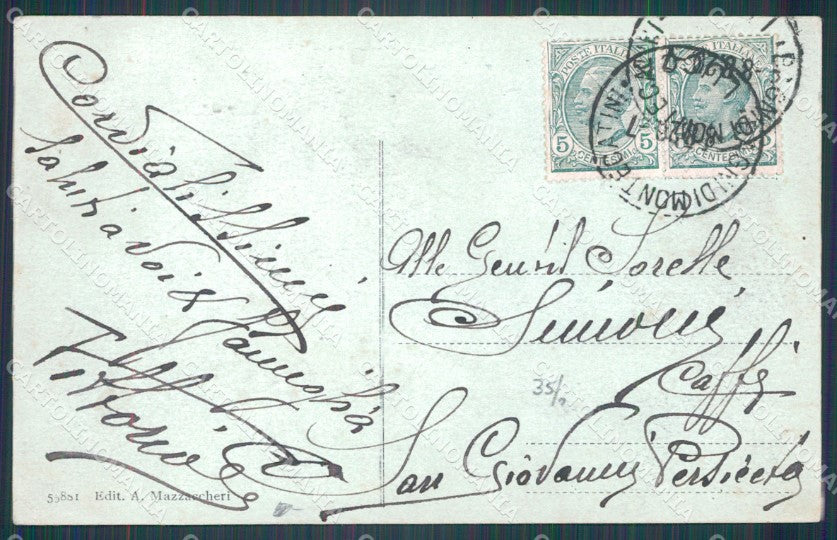 Cordialissimi
Saluti a voi e
Famiglia
Vittorio
POSTE ITALIANE
5 5
CENTESIMI
POSTE ITALIANE
CENTESIMI
BAGNI DI MONTECATINI
Alle Gentil Sorelle
Simoni
Caffè
35/2
San Giovanni Persiceto
Edit. A. Mazzaccheri
CARTOLINOMANIA